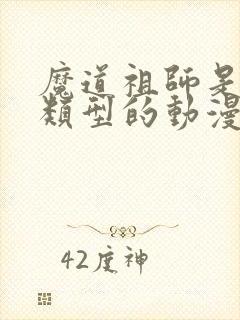 魔道祖師是
類型的動漫
42度神